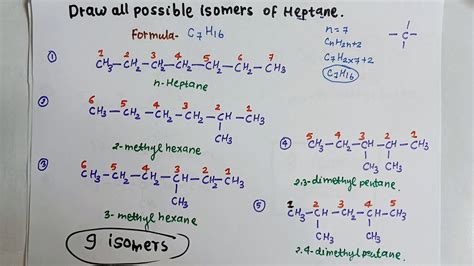 Draw all possible isomers of Heptane.
Formula- C7H16
n=7
CnH2n+2
C7H2x7+2
C7H16
-C-
①
1 2 3 4 5 6 7
CH3-CH2-CH2-CH2-CH2-CH2-CH3
n-Heptane
②
6 5 4 3 2 1
CH3-CH2-CH2-CH2-CH-CH3
CH3
2-methyl hexane
③
6 5 4 3 2 1
CH3-CH2-CH2-CH-CH2-CH3
CH3
3-methyl hexane
9 isomers
④
5 4 3 2 1
CH3-CH2-CH-CH-CH3
CH3 CH3
2,3-dimethyl pentane.
⑤
1 2 3 4 5
CH3-CH-CH2-CH-CH3
CH3 CH3
2,4-dimethylpentane.